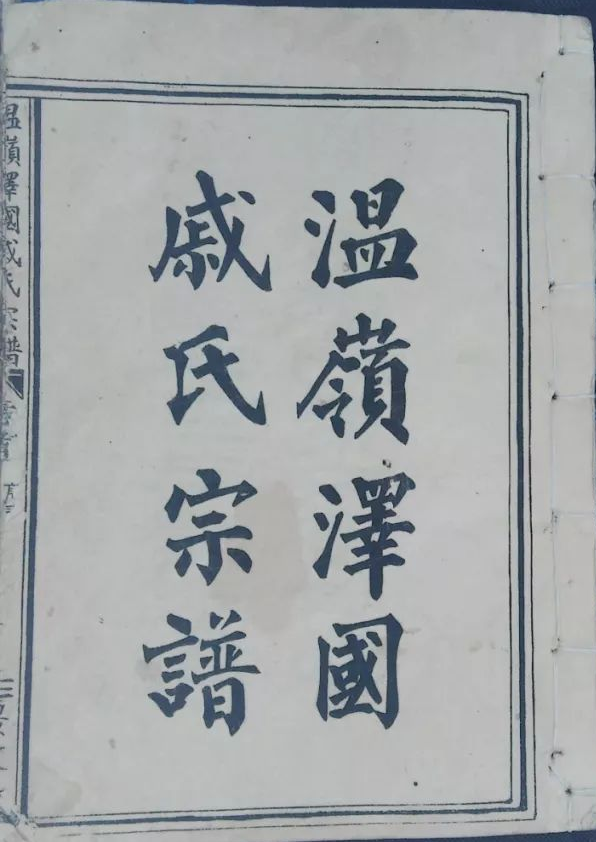 温嶺澤國
戚氏宗譜
温嶺澤國戚氏宗譜